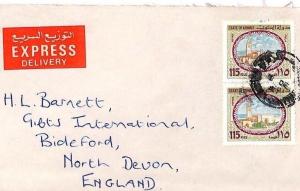 التوزيع السريع
EXPRESS
DELIVERY
H.L. Barnett,
Gifts International,
Bideford,
North Devon,
ENGLAND.
STATE OF KUWAIT
115
١١٥
STATE OF KUWAIT
115
١١٥